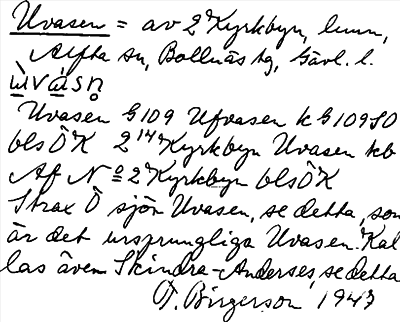 Uvasen = av 2 Kyrkbyn, hmn,
Alfta sn, Bollnäs tg, Gävl. l.
ùvàsn̥
Uvasen G109 Ufvasen k G109SO
bls Ö K 2¹⁴ Kyrkbyn Uvasen kb
Af Nº 2 Kyrkbyn bls Ö K
Strax Ö sjön Uvasen, se detta, som
är det ursprungliga Uvasen. Kal
las även Skindra-Anderses, se detta
T. Birgerson 1947